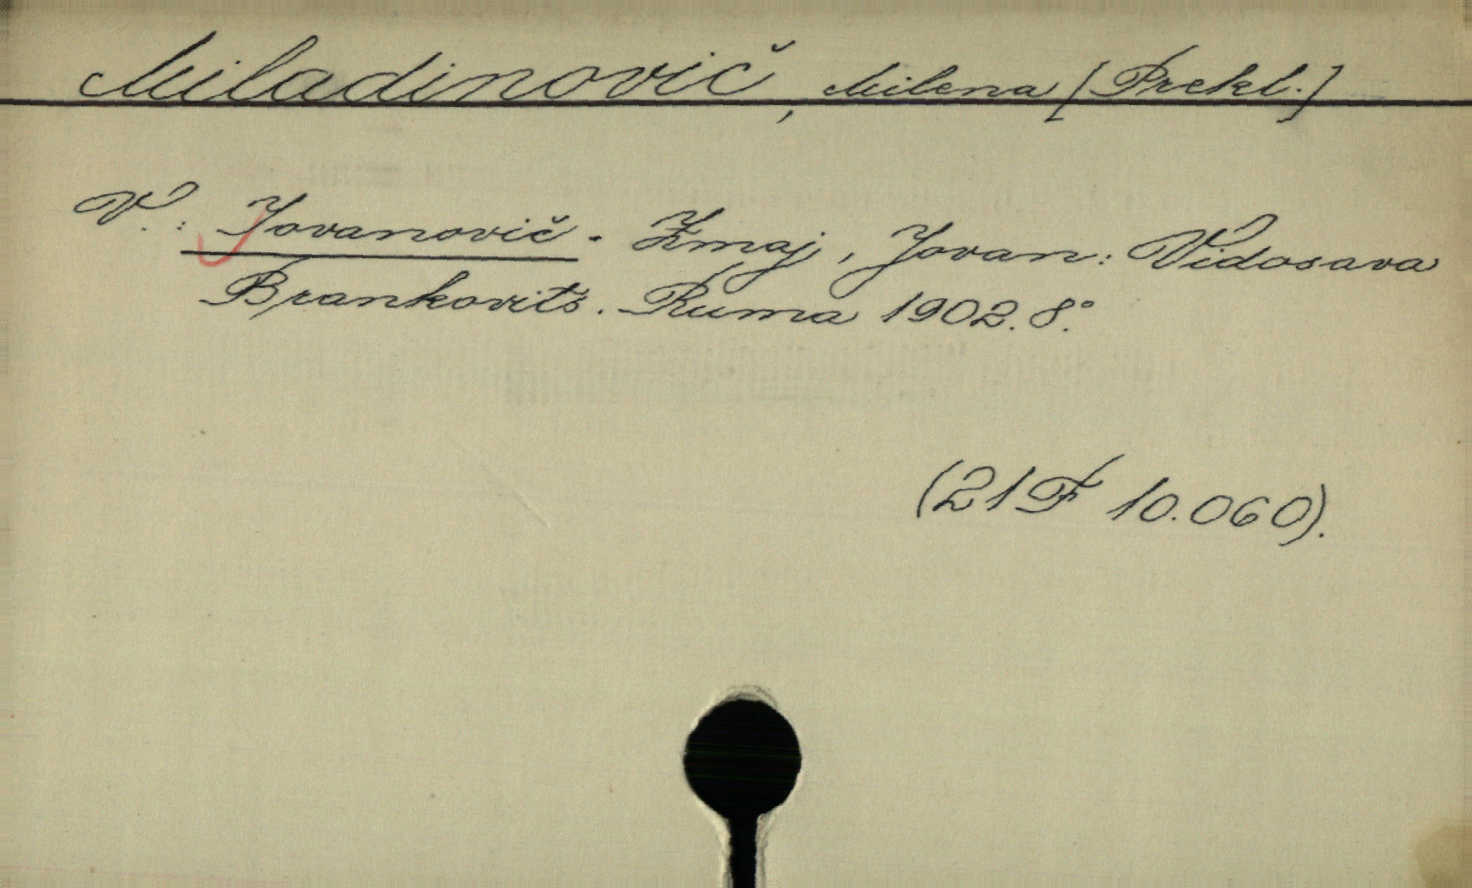 Miladinovič, Milena [Prekl.]
V.: Jovanovič - Zmaj, Jovan: Vidosava
Brankovits. Ruma 1902. 8.°
(21 F 10.060).